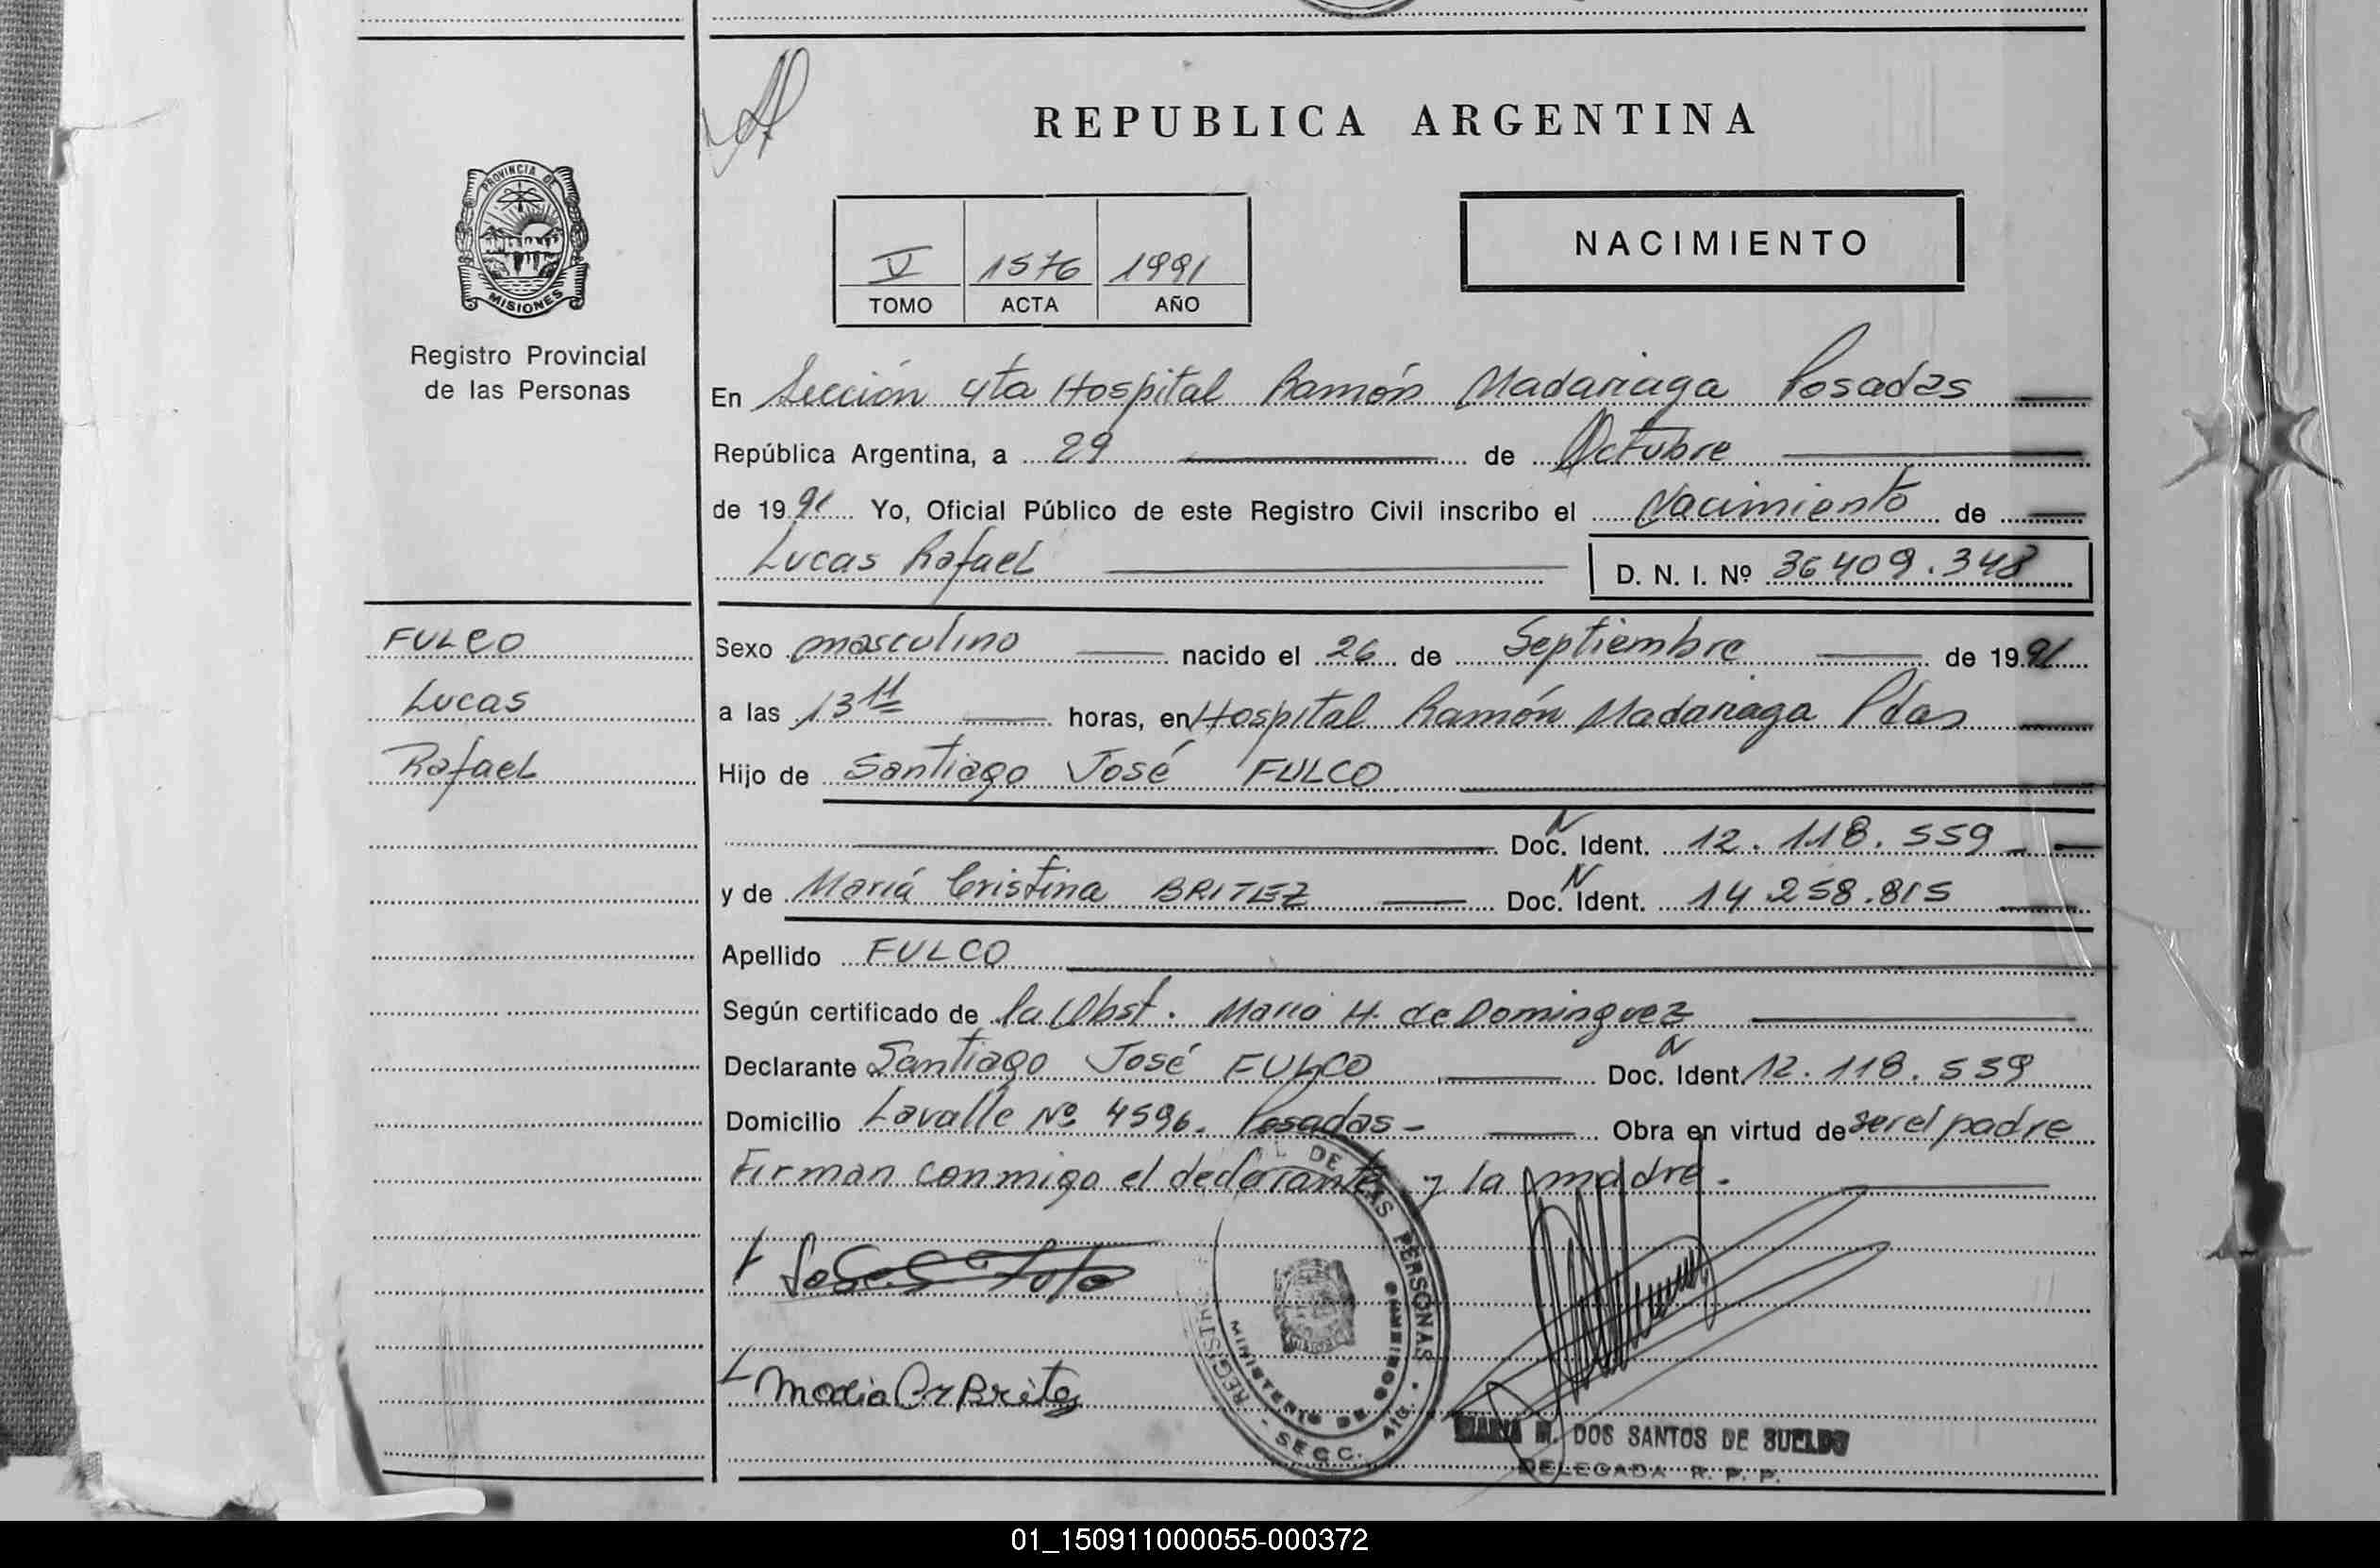 REPUBLICA ARGENTINA
PROVINCIA DE
MISIONES
Registro Provincial
de las Personas
V 1576 1991
TOMO ACTA AÑO
NACIMIENTO
En Sección 4ta Hospital Ramón Madariaga Posadas
República Argentina, a 29 de Octubre
de 1991 Yo, Oficial Público de este Registro Civil inscribo el Nacimiento de
Lucas Rafael D. N. I. Nº 36409.348
FULCO
Lucas
Rafael
Sexo masculino nacido el 26 de Septiembre de 1991
a las 13 11 horas, en Hospital Ramón Madariaga Pdas
Hijo de Santiago José FULCO
Doc. N Ident. 12.118.559
y de María Cristina BRITEZ Doc. N Ident. 14 258.815
Apellido FULCO
Según certificado de la Obst. María H. de Dominguez
Declarante Santiago José FULCO Doc. N Ident. 12.118.559
Domicilio Lavalle Nº 4596. Posadas - Obra en virtud de ser el padre
Firman conmigo el declarante y la madre.
REGISTR L DE LAS PERSONAS
MINISTERIO DE GOBIERNO
SECC. 4ta.
Maria Cr Britez
MARIA M. DOS SANTOS DE SUELDO
DELEGADA R. P. P.
01_150911000055-000372